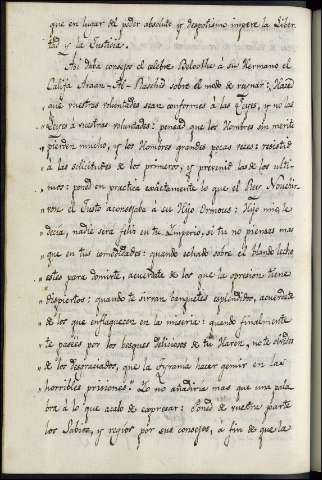 que en lugar del poder absoluto y despotismo impere la Liber-
tad y la Justicia.
Asi daba consejos el celebre Beloulhe á su Hermano el
Califa Araon-Al-Raschid sobre el modo de reynar: Haced
„ que vuestras voluntades sean conformes á las Leyes, y no las
„ Leyes á vuestras voluntades: pensad que los Hombres sin merito
„ pierden mucho, y los Hombres grandes pocas veces: resistid
„ á las solicitudes de los primeros, y prevenid las de los ulti-
„ mos: poned en practica exáctamente lo que el Rey Nouchir-
„ von el Justo aconsejaba á su Hijo Ormous: Hijo mio, le
„ decia, nadie será feliz en tu Imperio, si tu no piensas mas
„ que en tus comodidades: quando echado sobre el blando lecho
„ estés para dormirte, acuerdate de los que la opresion tiene
„ dispiertos: quando te sirvan banquetes esplendidos, acuerdate
„ de los que enflaquecen en la miseria: quando finalmente
„ te paseés por los bosques deliciosos de tu Haren, no te olvides
„ de los desgraciados, que la tyrania hacer gemir en las
„ horribles prisiones." Yo no añadiria mas que una pala-
bra á lo que acabo de expresar: Poned de vuestra parte
los Sabios, y regios por sus consejos, á fin de que la